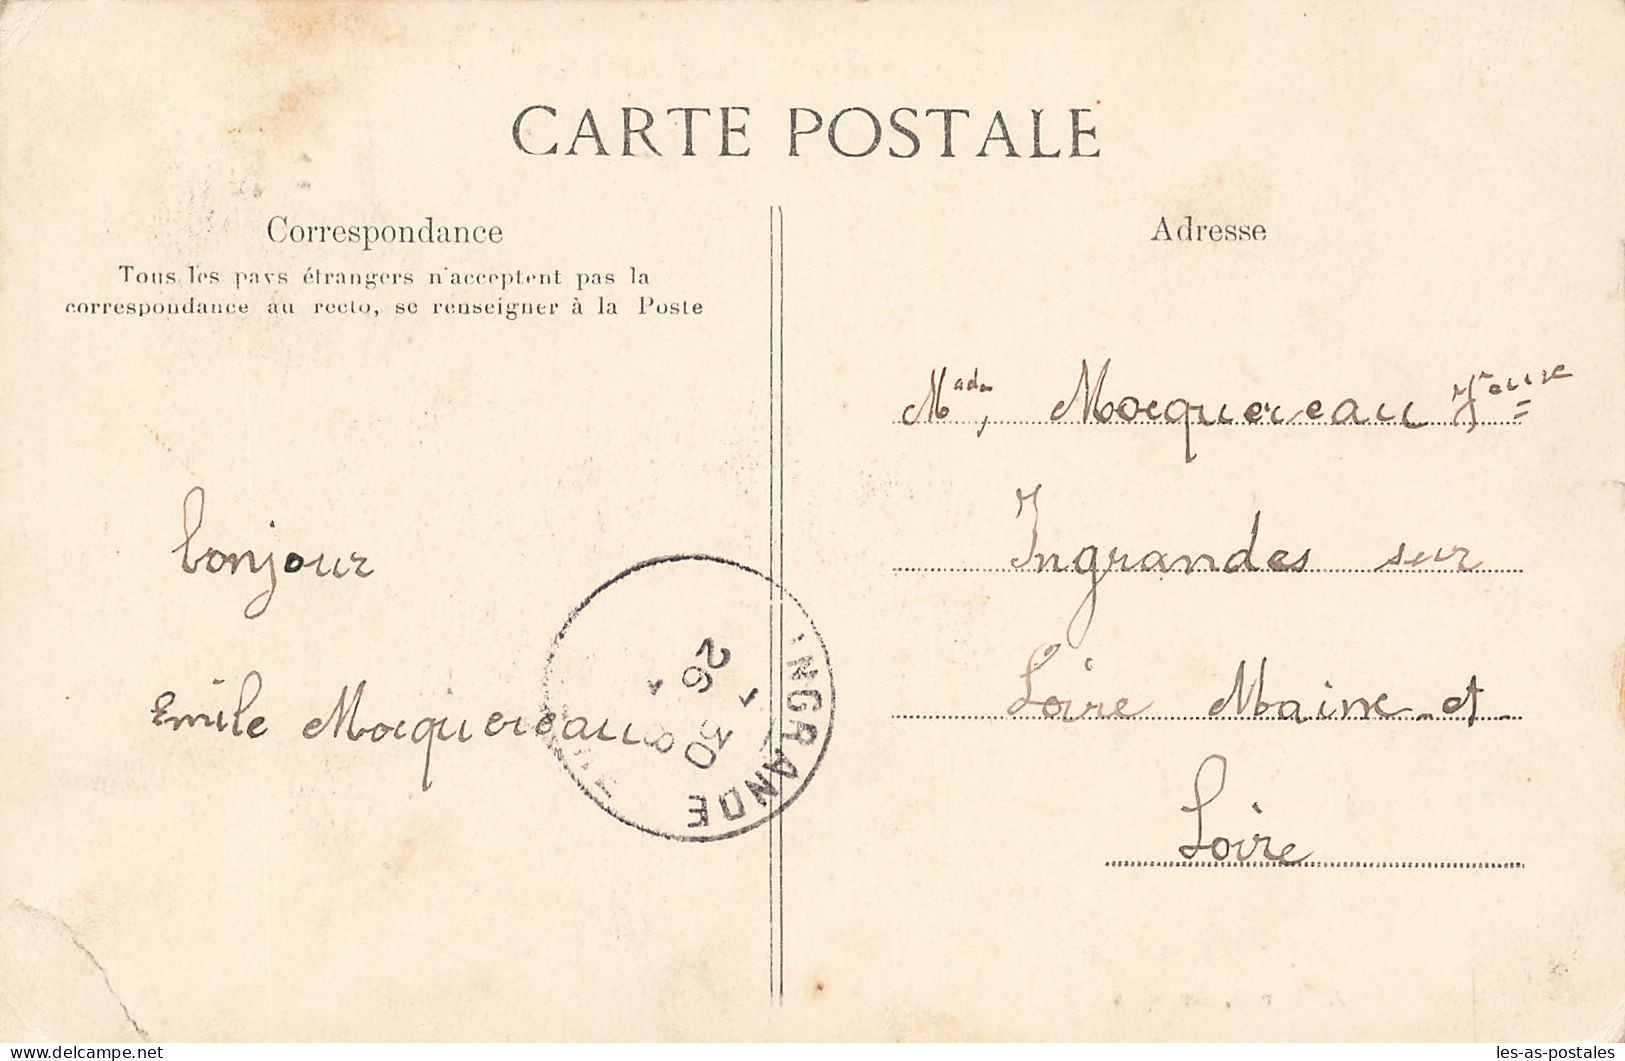 CARTE POSTALE
Correspondance
Tous les pays étrangers n'acceptent pas la
correspondance au recto, se renseigner à la Poste
bonjour
Emile Mocquereau
Adresse
Mocquereau
Ingrandes sur
Loire Maine-et-
Loire
INGRANDE
26
30
8
http://www.delcampe.net
les-as-postales